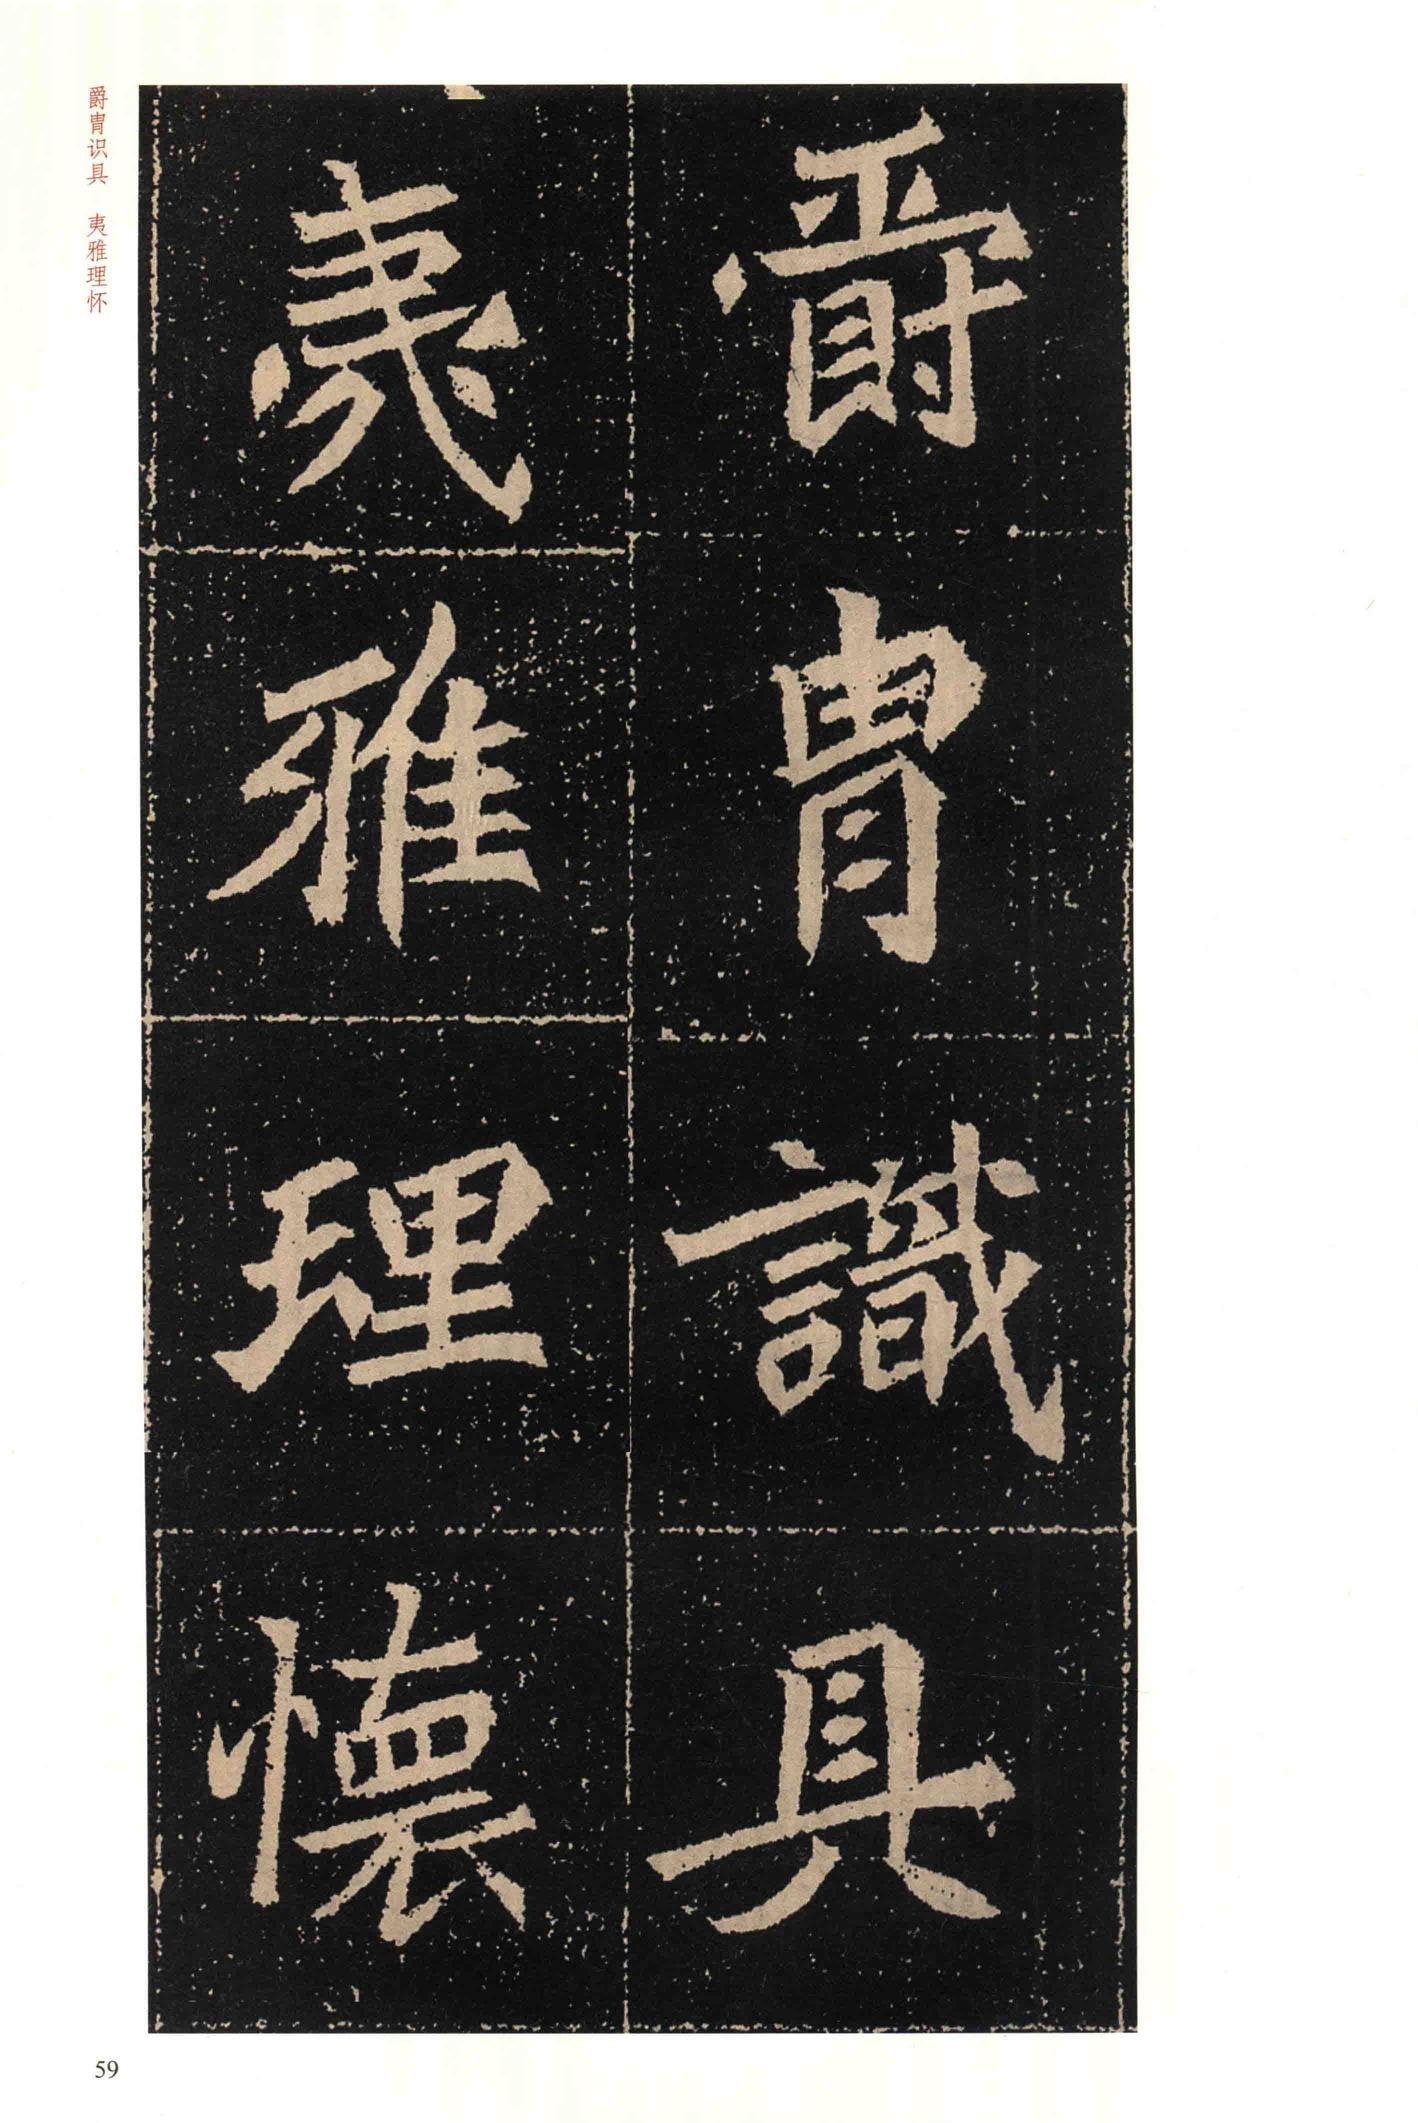 爵胄識具
夷雅理懷
爵胄识具 夷雅理怀
59